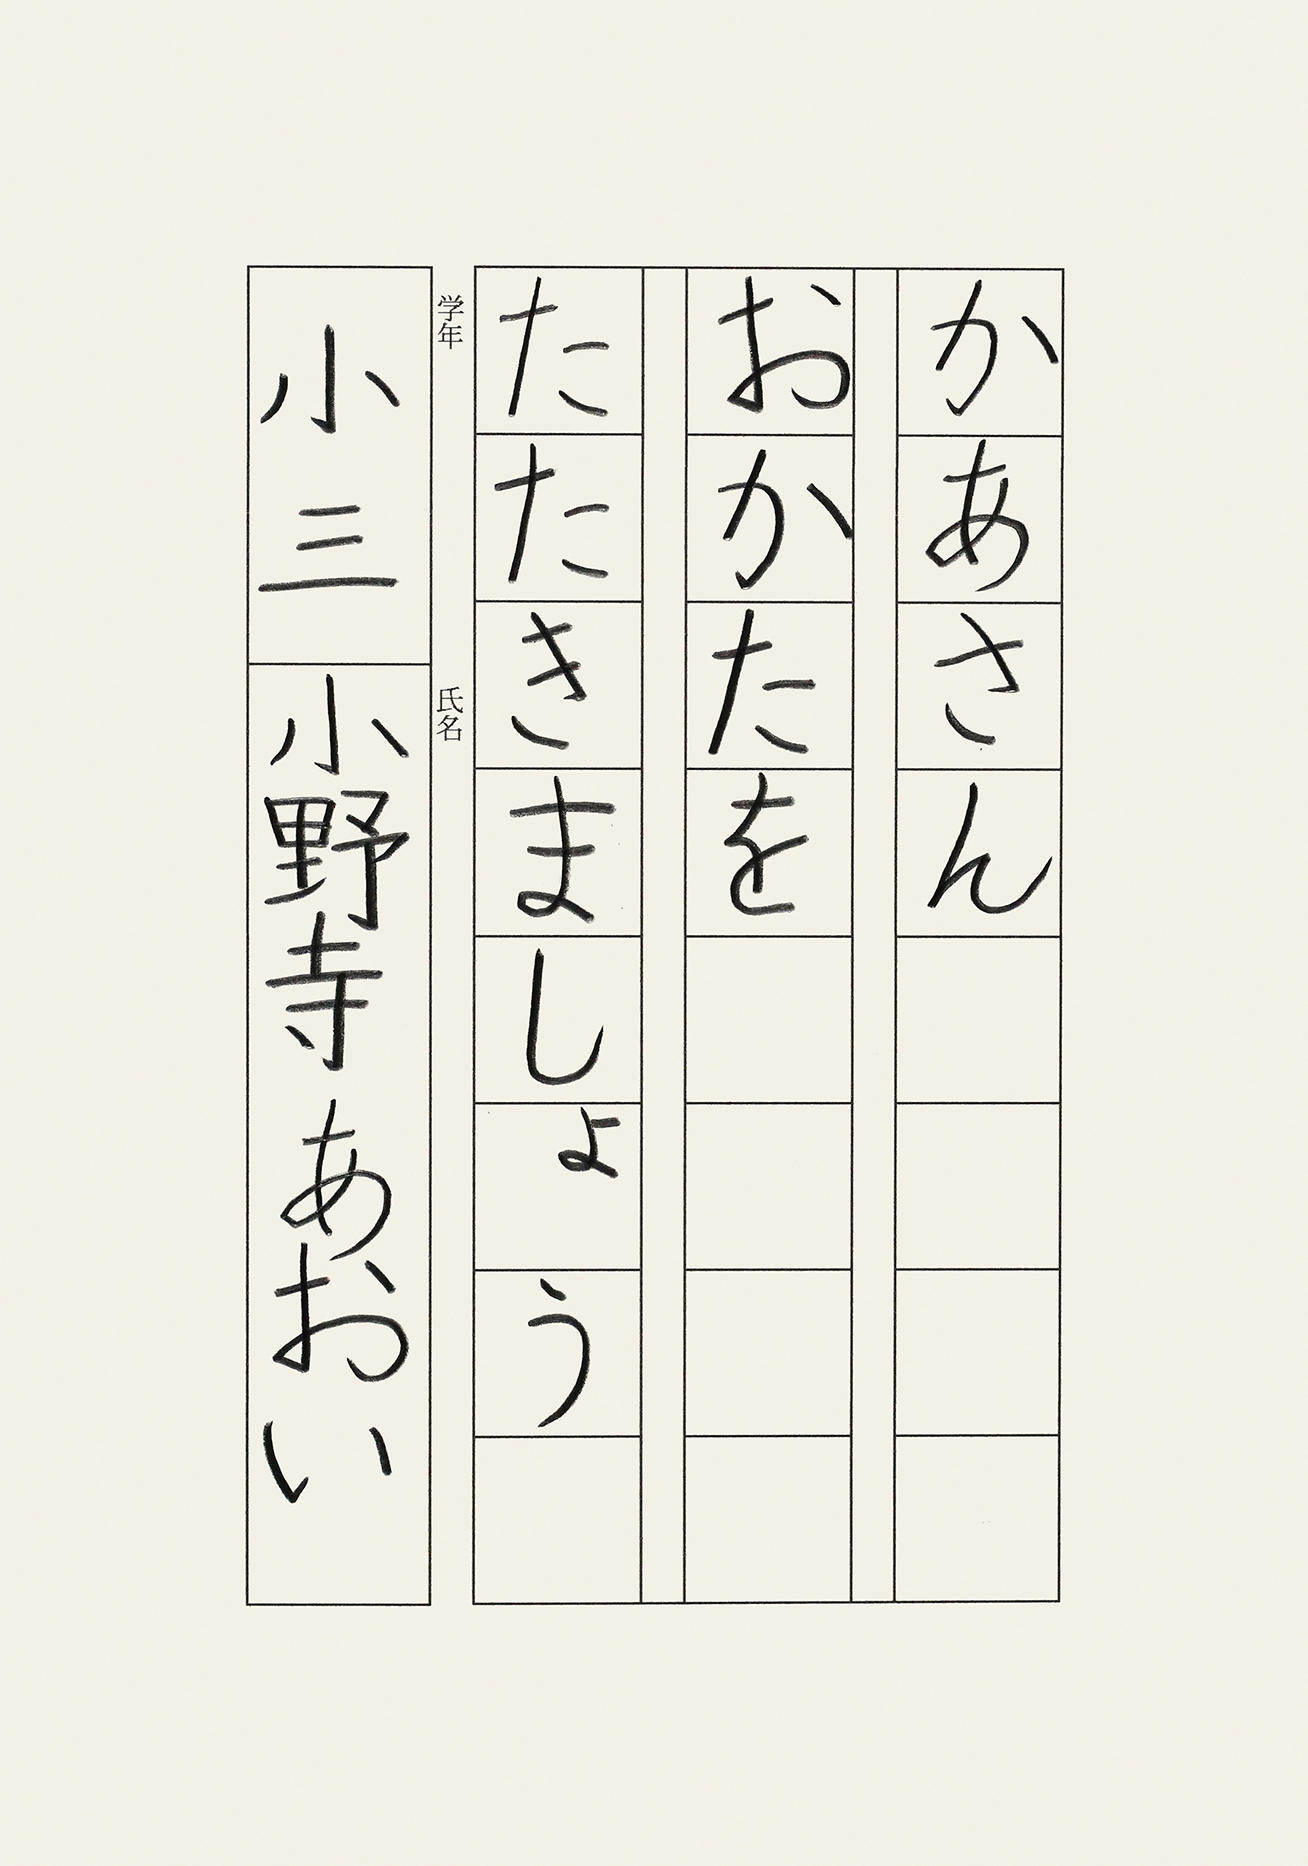 かあさん
おかたを
たたきましょう
学年
小三
氏名
小野寺あおい